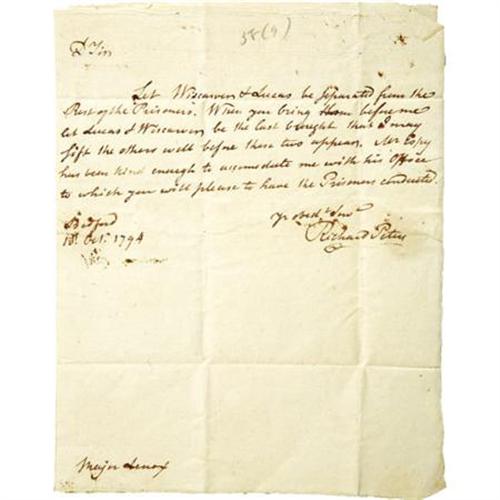 58(9)
Dr Sir
Let Wiscarver & Lucas be separated from the
Rest of the Prisoners. When you bring them before me
let Lucas & Wiscarver be the last brought that I may
sift the others well before these two appear. Mr Espy
has been kind enough to accomodate me with his Office
to which you will please to have the Prisoners conducted.
Yr obedt Servt
Richard Peters
Bedford
Octr 1794
Major Lenox